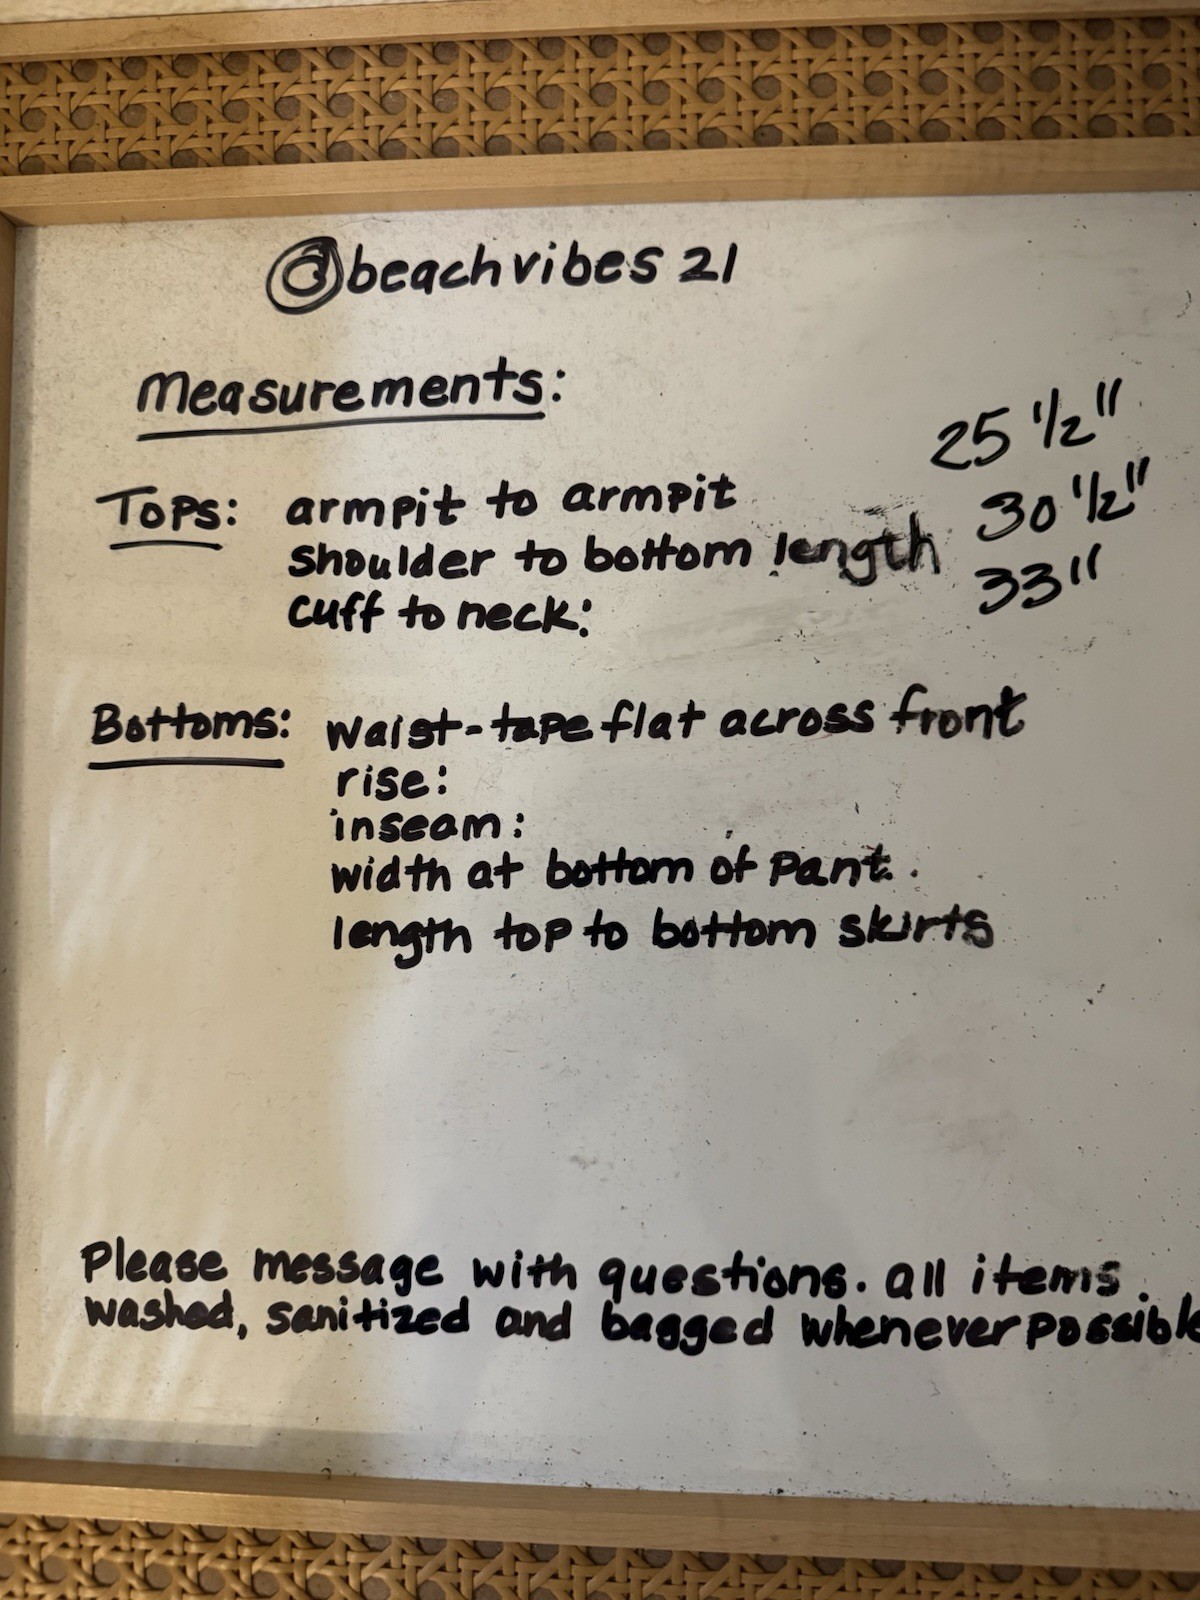 @beachvibes 21
Measurements:
Tops: armpit to armpit 25 1/2"
shoulder to bottom length 30 1/2"
cuff to neck: 33"
Bottoms: waist-tape flat across front
rise:
inseam:
width at bottom of pant.
length top to bottom skirts
Please message with questions. all items
washed, sanitized and bagged whenever possible